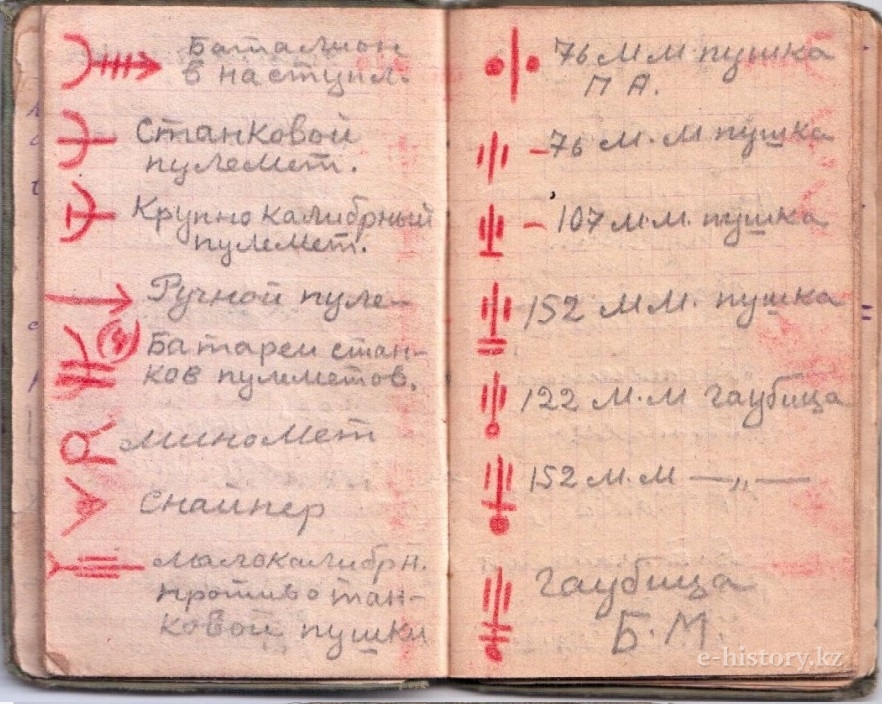 Баталион
в наступл.
Станковой
пулемет.
Крупнокалибрный
пулемет.
Ручной пуле-
Батареи стан-
ков пулеметов.
миномет
снайпер
малокалибрн.
противотан-
ковой пушки
76 м.м пушка
П А.
- 76 м.м пушка
- 107 м.м. пушка
152 м.м. пушка
122 м.м гаубица
152 м.м — „ —
гаубица
Б.М.
e-history.kz